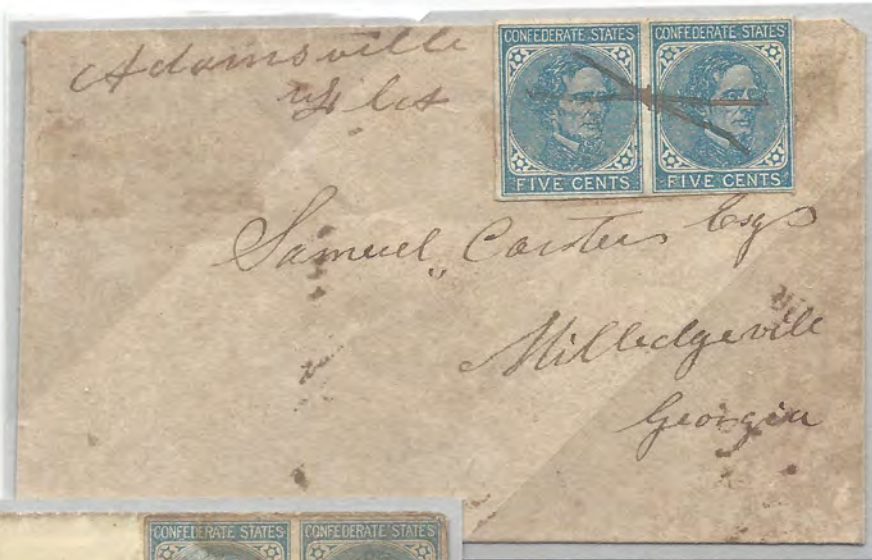 Adamsville
CONFEDERATE STATES CONFEDERATE STATES
FIVE CENTS FIVE CENTS
Samuel Carters Esqr
Milledgeville
Georgia
CONFEDERATE STATES CONFEDERATE STATES